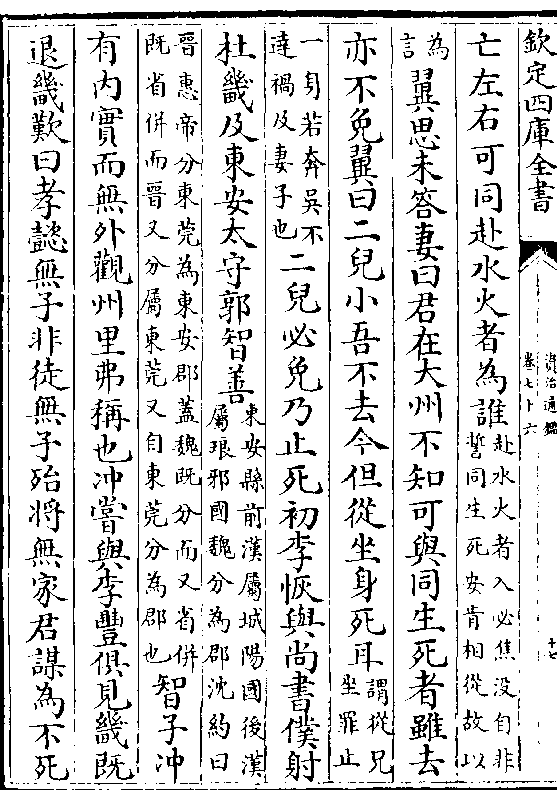 欽定四庫全書
資治通鑑
卷七十六
十七
亡左右可同赴水火者為誰赴水火者入必焦没自非
誓同生死安肯相從故以
為
言翼思未答妻曰君在大州不知可與同生死者雖去
亦不免翼曰二兒小吾不去今但從坐身死耳謂從兄
坐罪止
一身若奔吳不
達禍及妻子也二兒必免乃止死初李恢與尚書僕射
杜畿及東安太守郭智善東安縣前漢屬城陽國後漢
屬琅邪國魏分為郡沈約曰
晉惠帝分東莞為東安郡蓋魏既分而又省併
既省併而晉又分屬東莞又自東莞分為郡也智子冲
有内實而無外觀州里弗稱也冲嘗與李豐俱見畿既
退畿歎曰孝懿無子非徒無子殆將無家君謀為不死